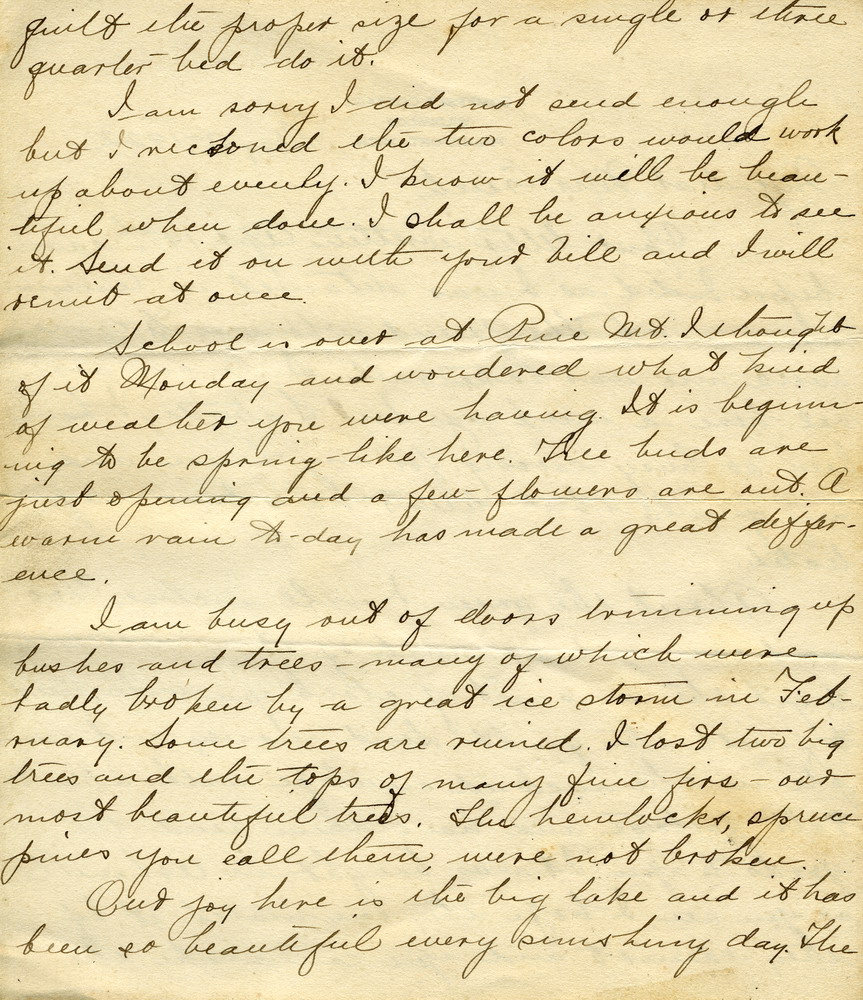 quilt the proper size for a single or three
quarter bed do it.
I am sorry I did not send enough
but I reckoned the two colors would work
up about evenly. I know it will be beau-
tiful when done. I shall be anxious to see
it. Send it on with your bill and I will
remit at once.
School is over at Pine Mt. I thought
of it Monday and wondered what kind
of weather you were having. It is beginn-
ing to be spring-like here. Tree buds are
just opening and a few flowers are out. A
warm rain to-day has made a great differ-
ence.
I am busy out of doors trimming up
bushes and trees - many of which were
badly broken by a great ice storm in Feb-
ruary. Some trees are ruined. I lost two big
trees and the tops of many fine firs - our
most beautiful trees. The hemlocks, spruce
pines you call them, were not broken.
Our joy here is the big lake and it has
been so beautiful every sunshiny day. The